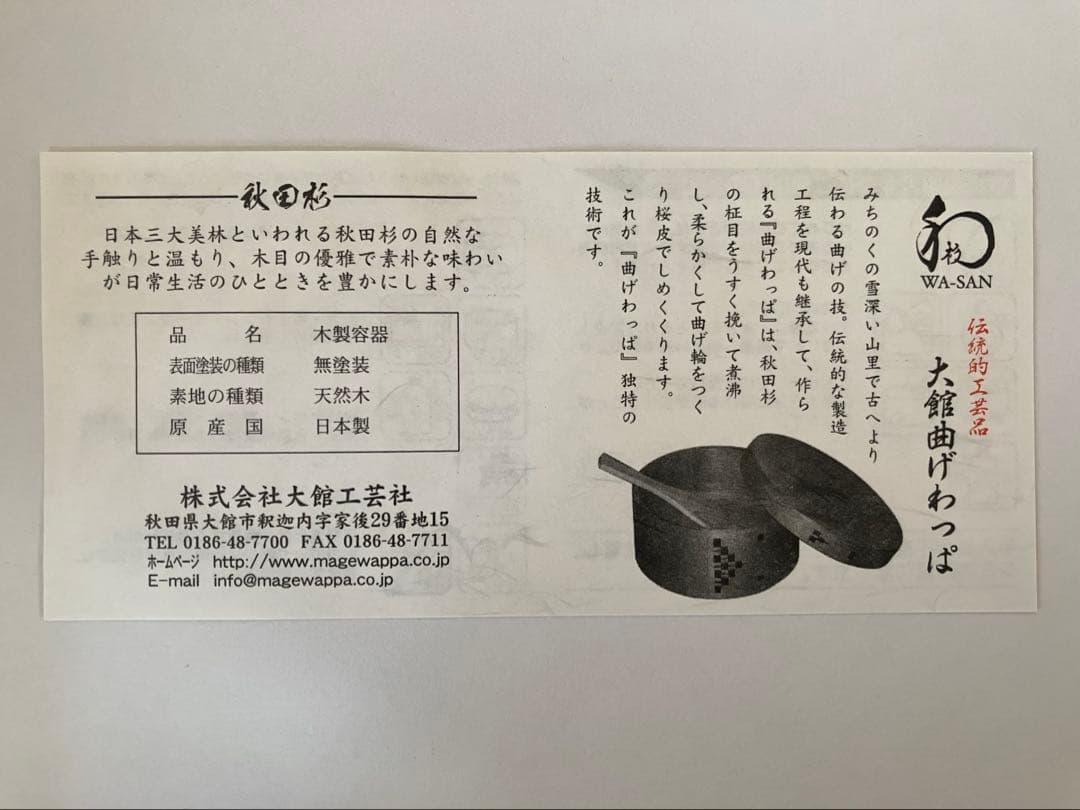 秋田杉
日本三大美林といわれる秋田杉の自然な
手触りと温もり、木目の優雅で素朴な味わい
が日常生活のひとときを豊かにします。
品名 木製容器
表面塗装の種類 無塗装
素地の種類 天然木
原産国 日本製
株式会社大館工芸社
秋田県大館市釈迦内字家後29番地15
TEL 0186-48-7700 FAX 0186-48-7711
ホームページ http://www.magewappa.co.jp
E-mail info@magewappa.co.jp
和技
WA-SAN
伝統的工芸品
大館曲げわっぱ
みちのくの雪深い山里で古へより
伝わる曲げの技。伝統的な製造
工程を現代も継承して、作ら
れる『曲げわっぱ』は、秋田杉
の柾目をうすく挽いて煮沸
し、柔らかくして曲げ輪をつく
り桜皮でしめくくります。
これが『曲げわっぱ』独特の
技術です。